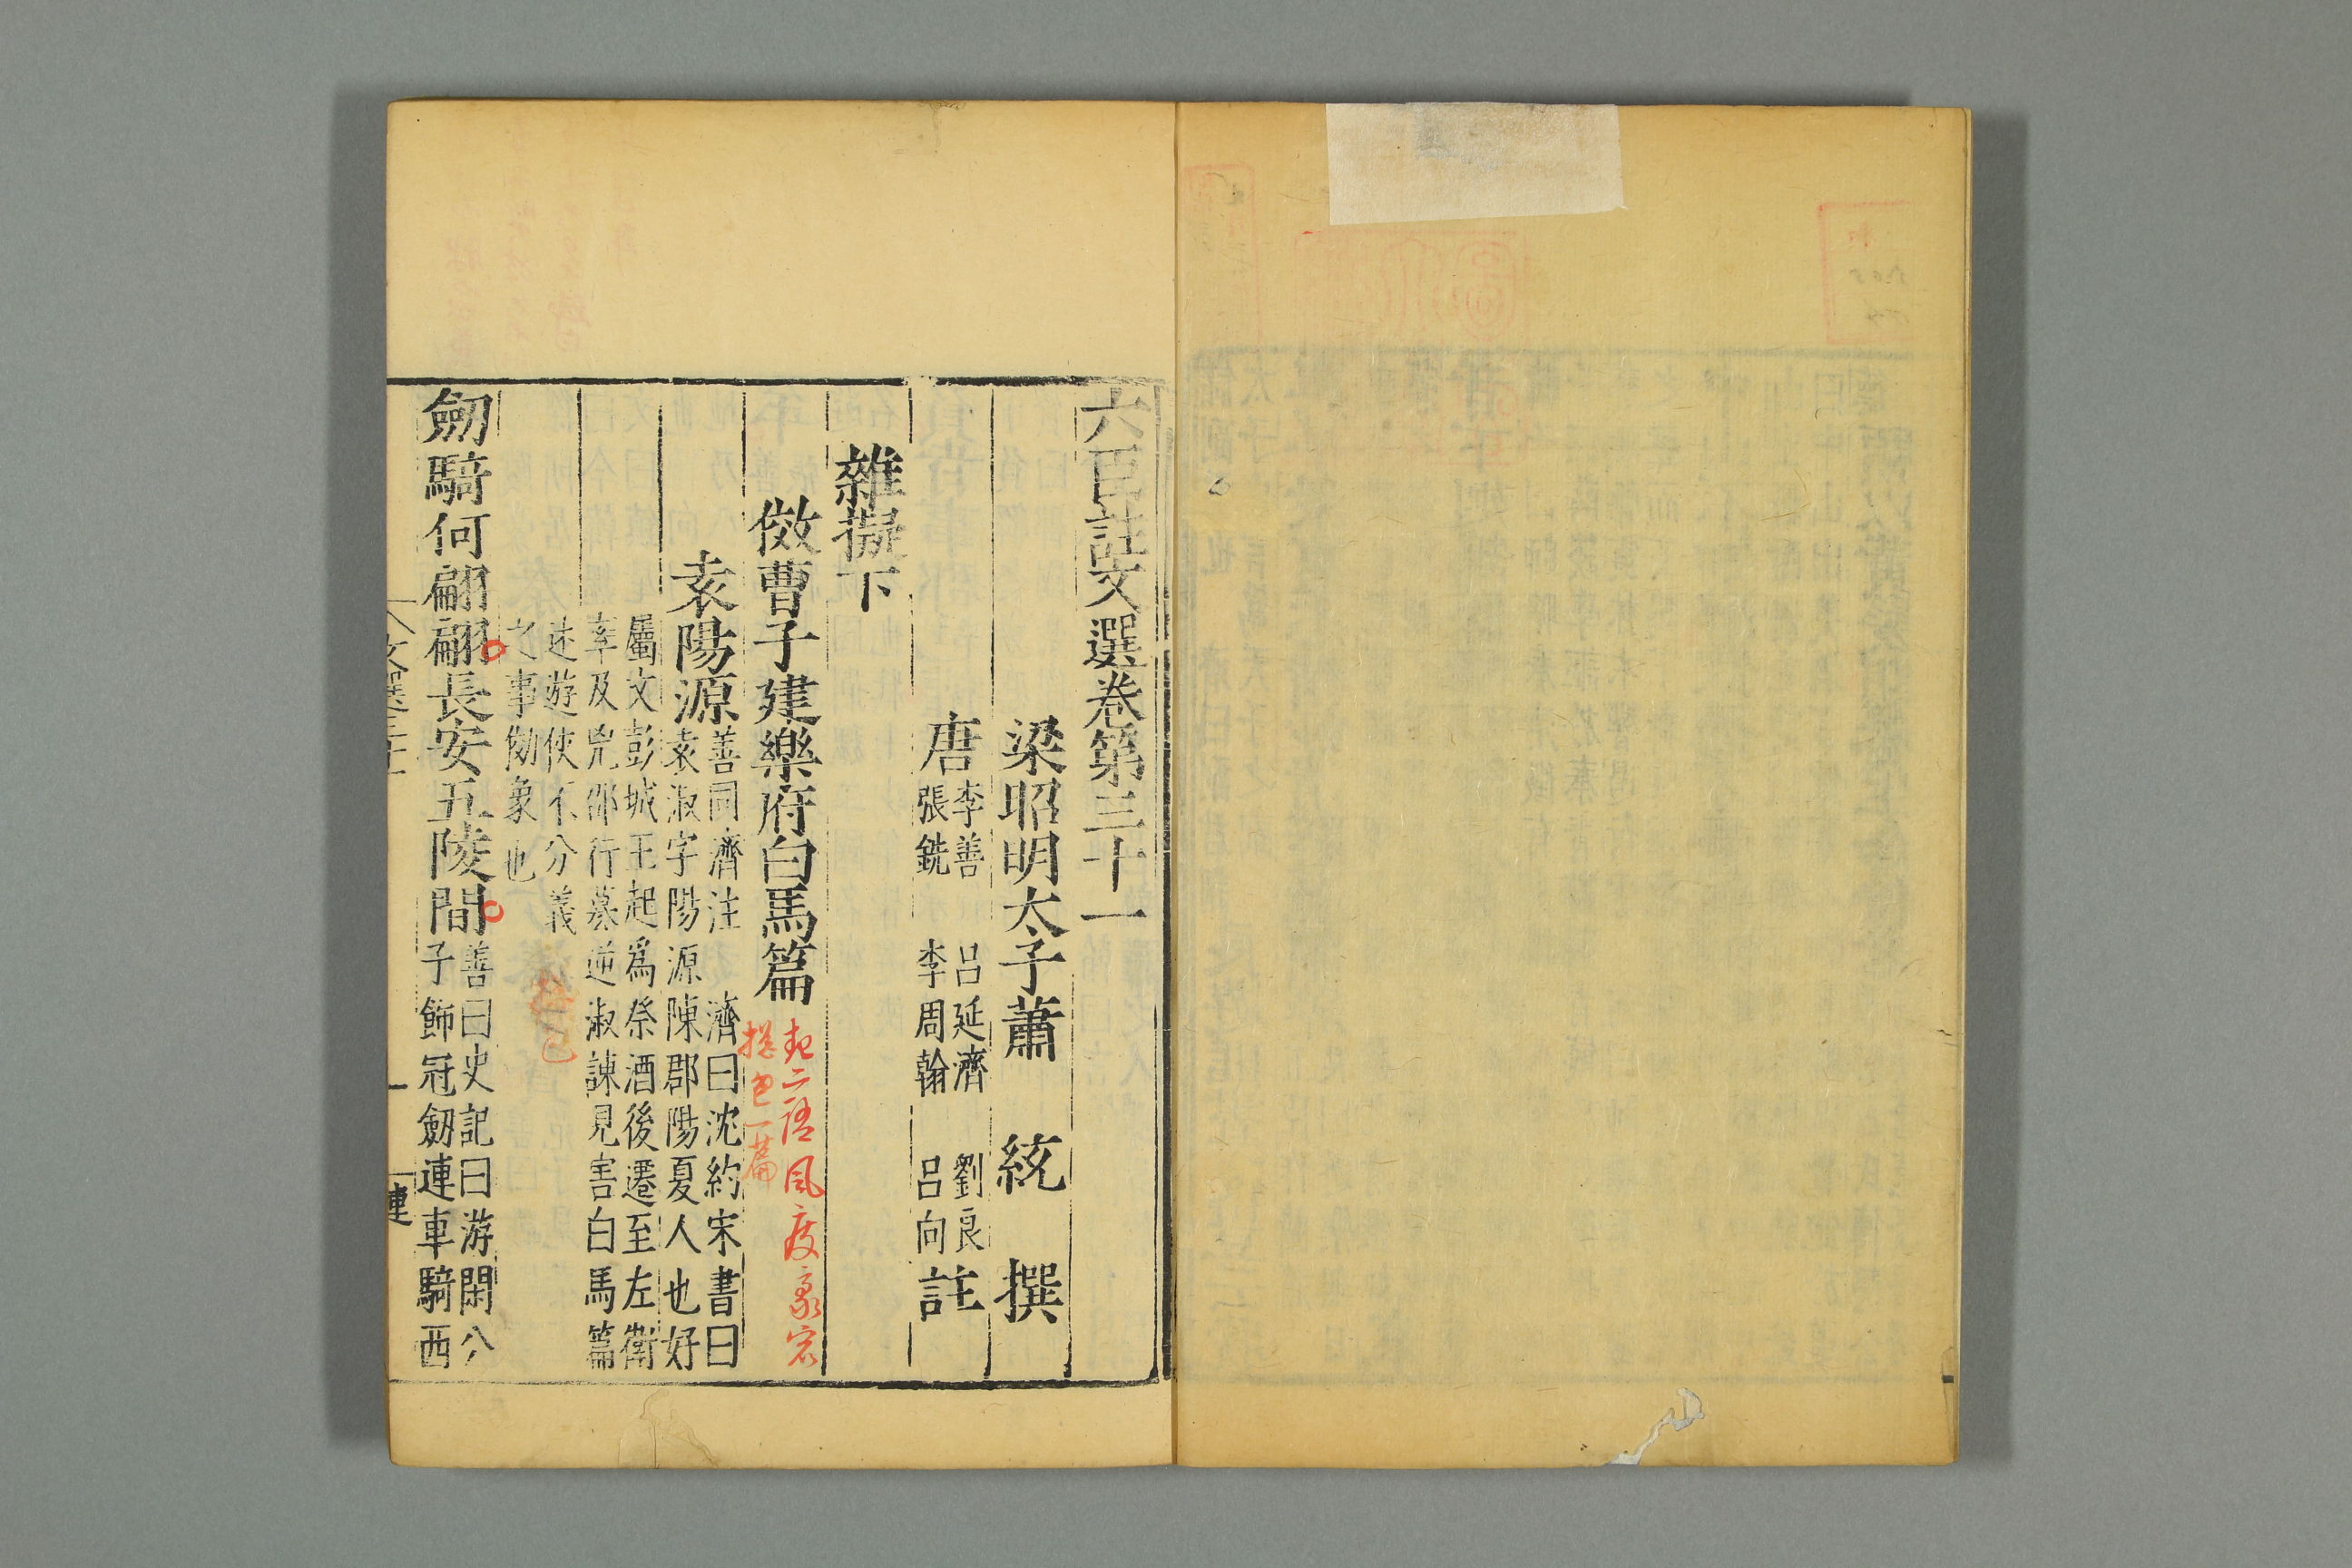 六臣註文選卷第三十一
梁昭明太子蕭 統 撰
唐 李善 呂延濟 劉良
張銑 李周翰 呂向 註
雜擬下
倣曹子建樂府白馬篇
起二語風度豪宕
袁陽源
善同濟注 濟曰沈約宋書曰
袁淑字陽源陳郡陽夏人也好
屬文彭城王起爲祭酒後遷至左衛
率及兇邵行墓逆淑諫見害白馬篇
述遊俠不分義
之事倣象也
劒騎何翩翩長安五陵間
善曰史記曰游閑公
子飾冠劒連車騎西
文選三十一
一
連